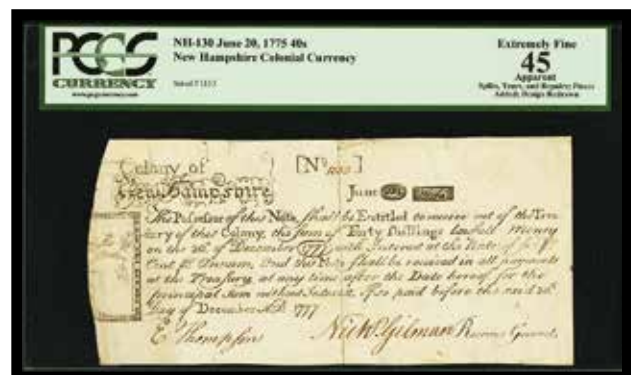 PCGS
CURRENCY
NH-130 June 20, 1775 40s
New Hampshire Colonial Currency
Extremely Fine
45
Apparent
Splits, Tears, and Repairs; Pieces
Added; Design Redrawn
Colony of [No ]
New Hampshire June
The Possessor of this Note, shall be Entitled to receive out of the Trea
sury of this Colony, the sum of Forty Shillings Lawful Money
on the 20th of December 1777 with Interest at the Rate of
Cent Annum, And this Note shall be received in all payments
at the Treasury, at any time after the Date hereof for the
Principal Sum without Interest, if so paid before the said 20th
Day of December A.D. 1777
E Thompson Nich. Gilman